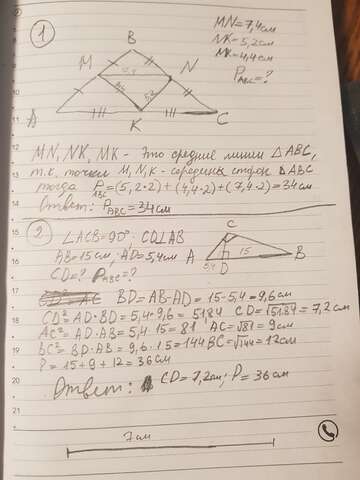 1
MN=7,4см
NK=5,2см
MK=4,4см
P ABC=?
B
M
N
A
K
C
MN, NK, MK - это средние линии △ABC,
т.к. точки M, N, K - середины сторон △ABC
тогда P ABC=(5,2·2)+(4,4·2)+(7,4·2)=34см
Ответ: P ABC=34см
2
∠ACB=90°; CD⊥AB
AB=15см; AD=5,4см
CD=? P ABC=?
C
A
5,4
D
15
B
BD=AB-AD=15-5,4=9,6см
CD²=AD·BD=5,4·9,6=51,84 CD=√51,84=7,2см
AC²=AD·AB=5,4·15=81 AC=√81=9см
BC²=BD·AB=9,6·15=144 BC=√144=12см
P=15+9+12=36см
Ответ: CD=7,2см; P=36см
7см